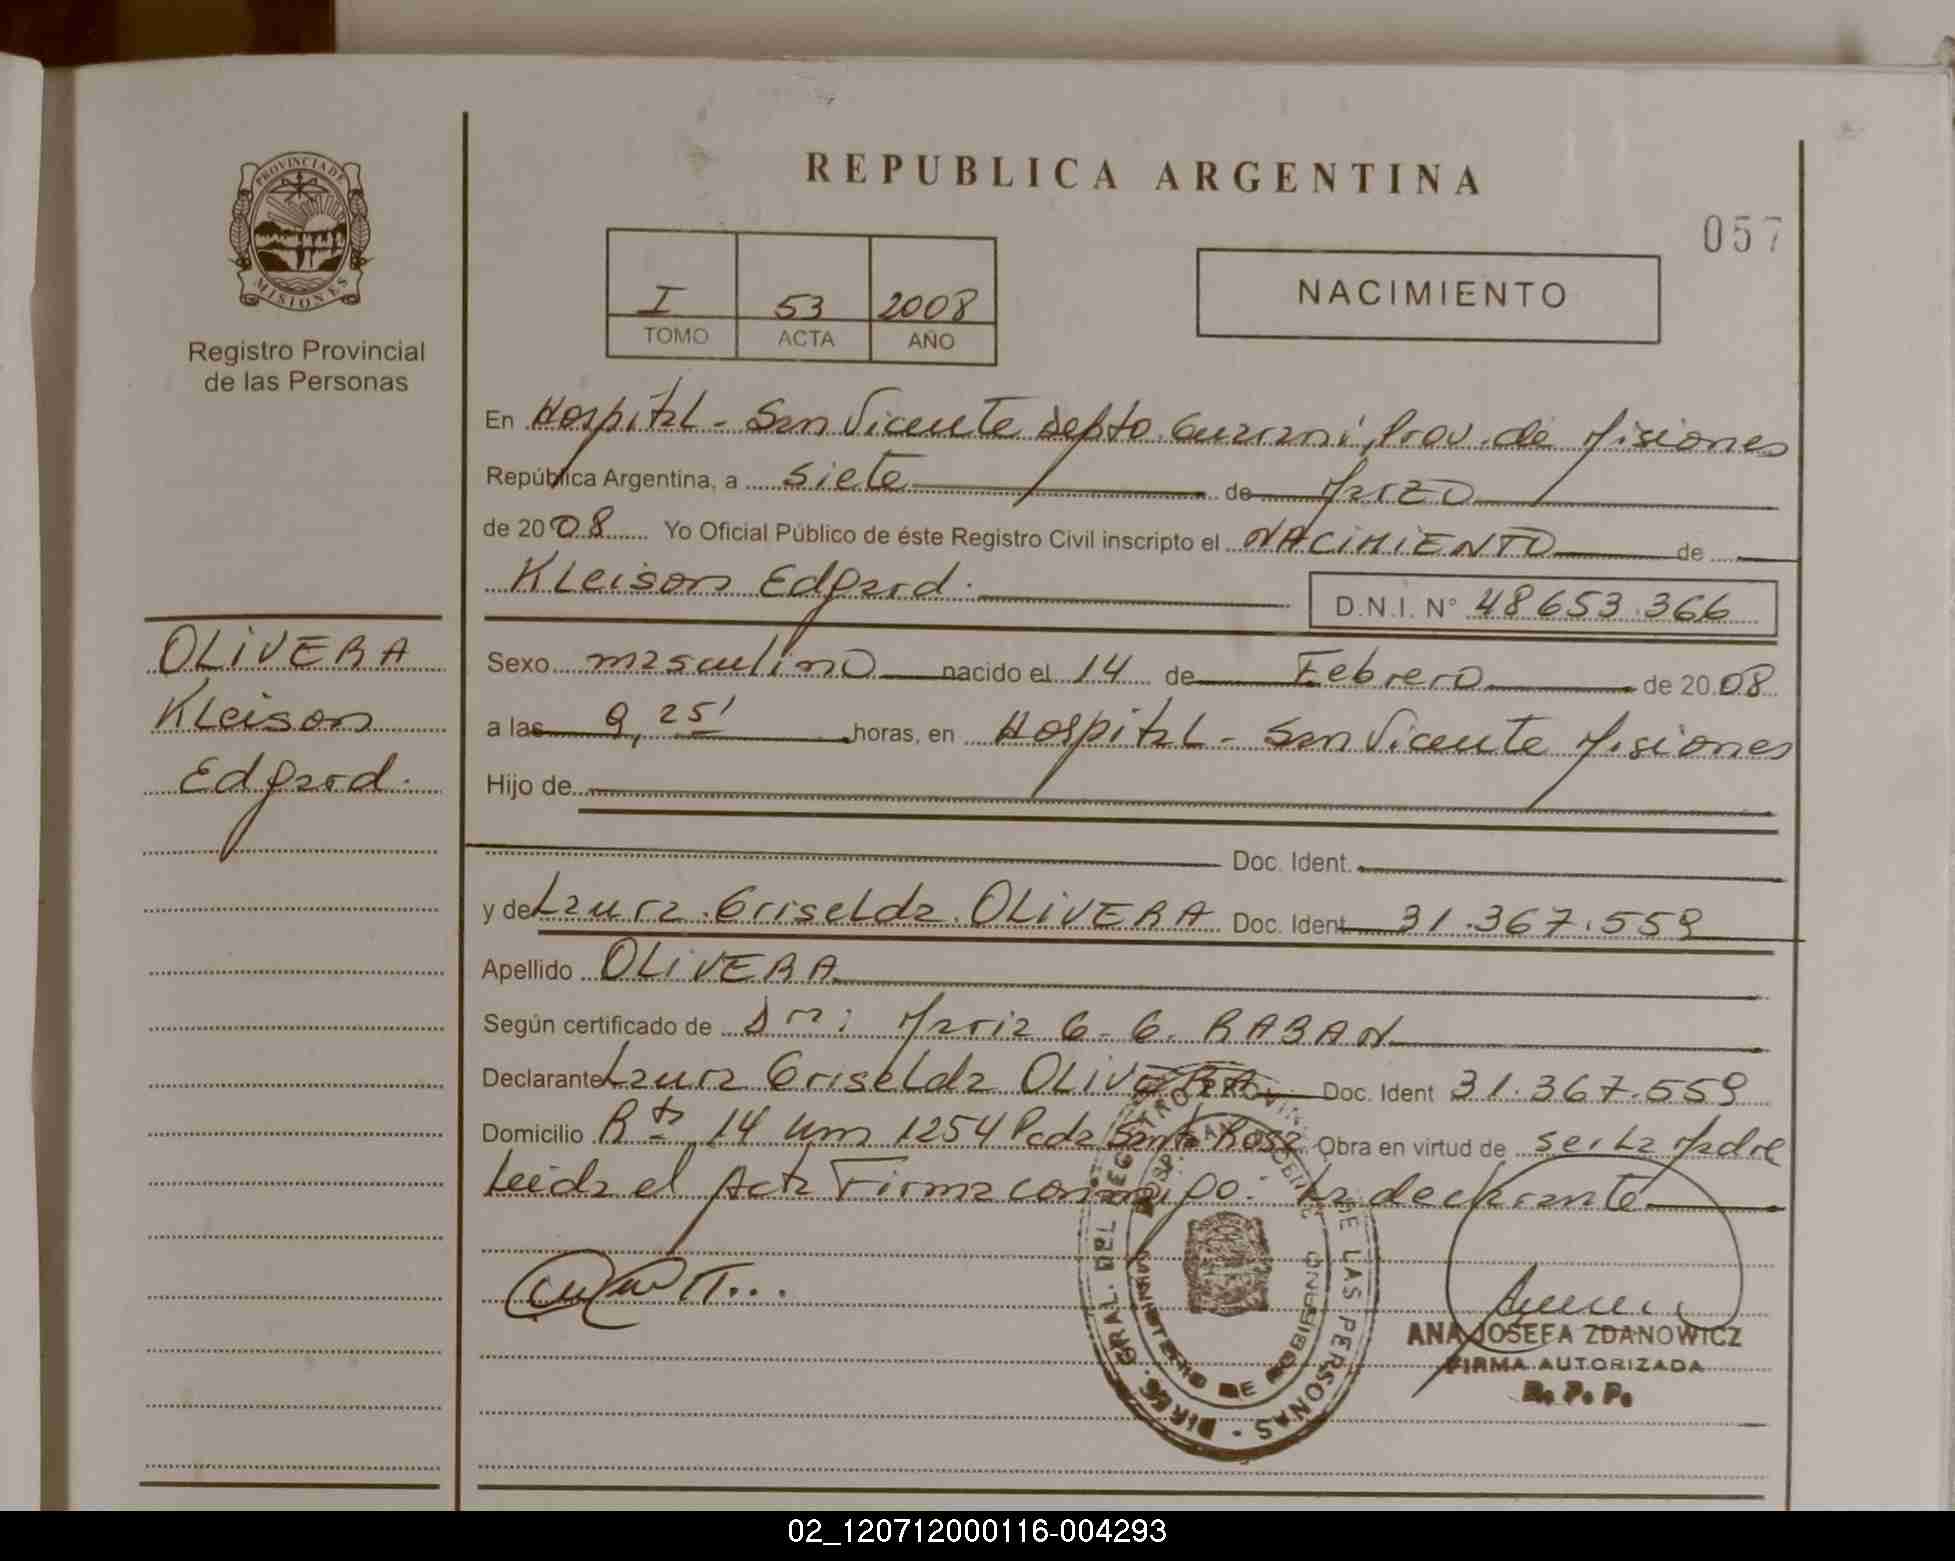 REPUBLICA ARGENTINA
057
PROVINCIA DE
MISIONES
Registro Provincial
de las Personas
I 53 2008
TOMO ACTA AÑO
NACIMIENTO
En Hospital - San Vicente Depto. Guarani, Prov. de Misiones
República Argentina, a siete de Marzo
de 2008 Yo Oficial Público de éste Registro Civil inscripto el NACIMIENTO de
Kleison Edgard.
D.N.I. N° 48653.366
OLIVERA
Kleison
Edgard.
Sexo masculino nacido el 14 de Febrero de 2008
a las 9,25' horas, en Hospital - San Vicente Misiones
Hijo de
Doc. Ident.
y de Laura Griselda OLIVERA Doc. Ident 31.367.559
Apellido OLIVERA
Según certificado de Dra: Maria G. G. RABAN
Declarante Laura Griselda OLIVERA Doc. Ident 31.367.559
Domicilio Rta 14 Km 1254 Pcda Santa Rosa Obra en virtud de ser La Madre
Leida el Acta Firma conmigo. La declarante
DIREC. GRAL. DEL REGISTRO PROVIN. DE LAS PERSONAS
MINISTERIO DE GOBIERNO
ANA JOSEFA ZDANOWICZ
FIRMA AUTORIZADA
R. P. P.
02_120712000116-004293